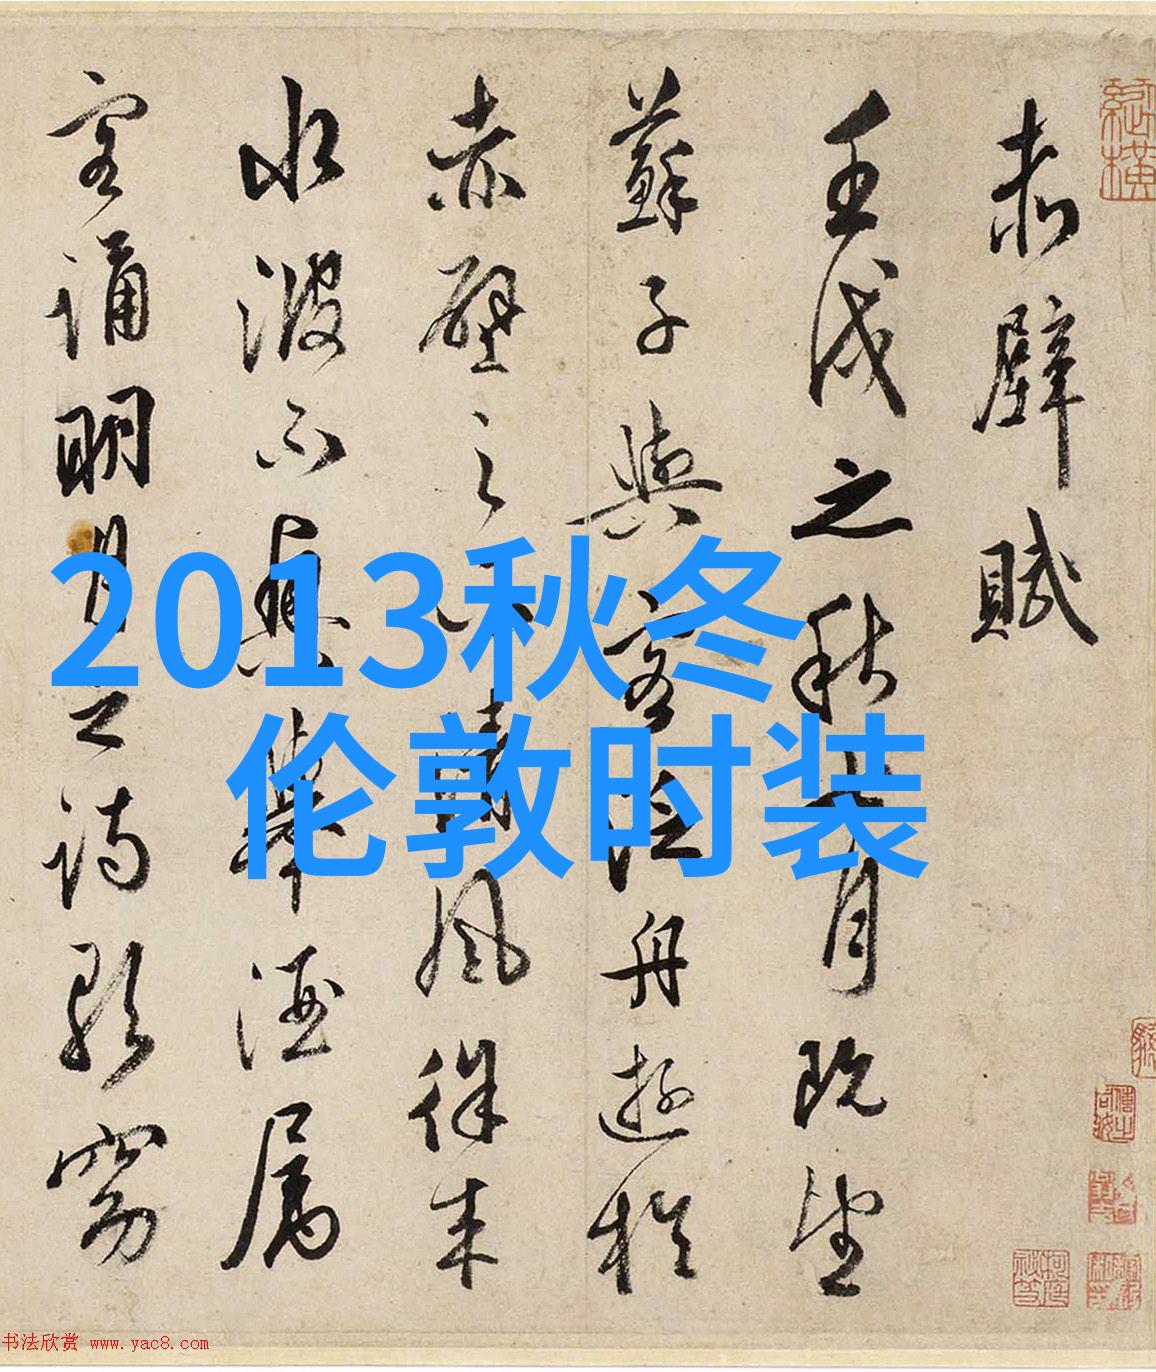 赤壁賦
壬戌之秋七月既望
蘇子與客泛舟遊於
赤壁之下清風徐来
水波不興舉酒属
客誦明月之詩歌窈
2013秋冬
伦敦时装
书法欣赏 www.yac8.com